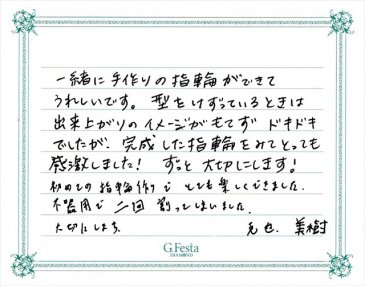 一緒に手作りの指輪ができて
うれしいです。型をけずっているときは
出来上がりのイメージがもてず ドキドキ
でしたが、完成した指輪をみてとっても
感激しました！ ずっと大切にします！
初めての指輪作りで とても楽しくできました。
不器用で 二回 割ってしまいました。
大切にします。 美樹
G.Festa
DIAMOND